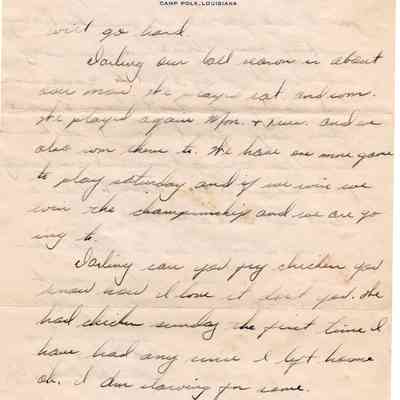 CAMP POLK, LOUISIANA
will go hard
Darling our ball season is about
over now. We played sat. and won.
We played again Mon. + Tues. and we
also won them to. We have one more game
to play saturday and if we win we
win the championship and we are go
ing to.
Darling can you fry chicken you
know how I love it dont you. We
had chicken sunday the first time I
have had any since I left home
oh, I am starving for some.